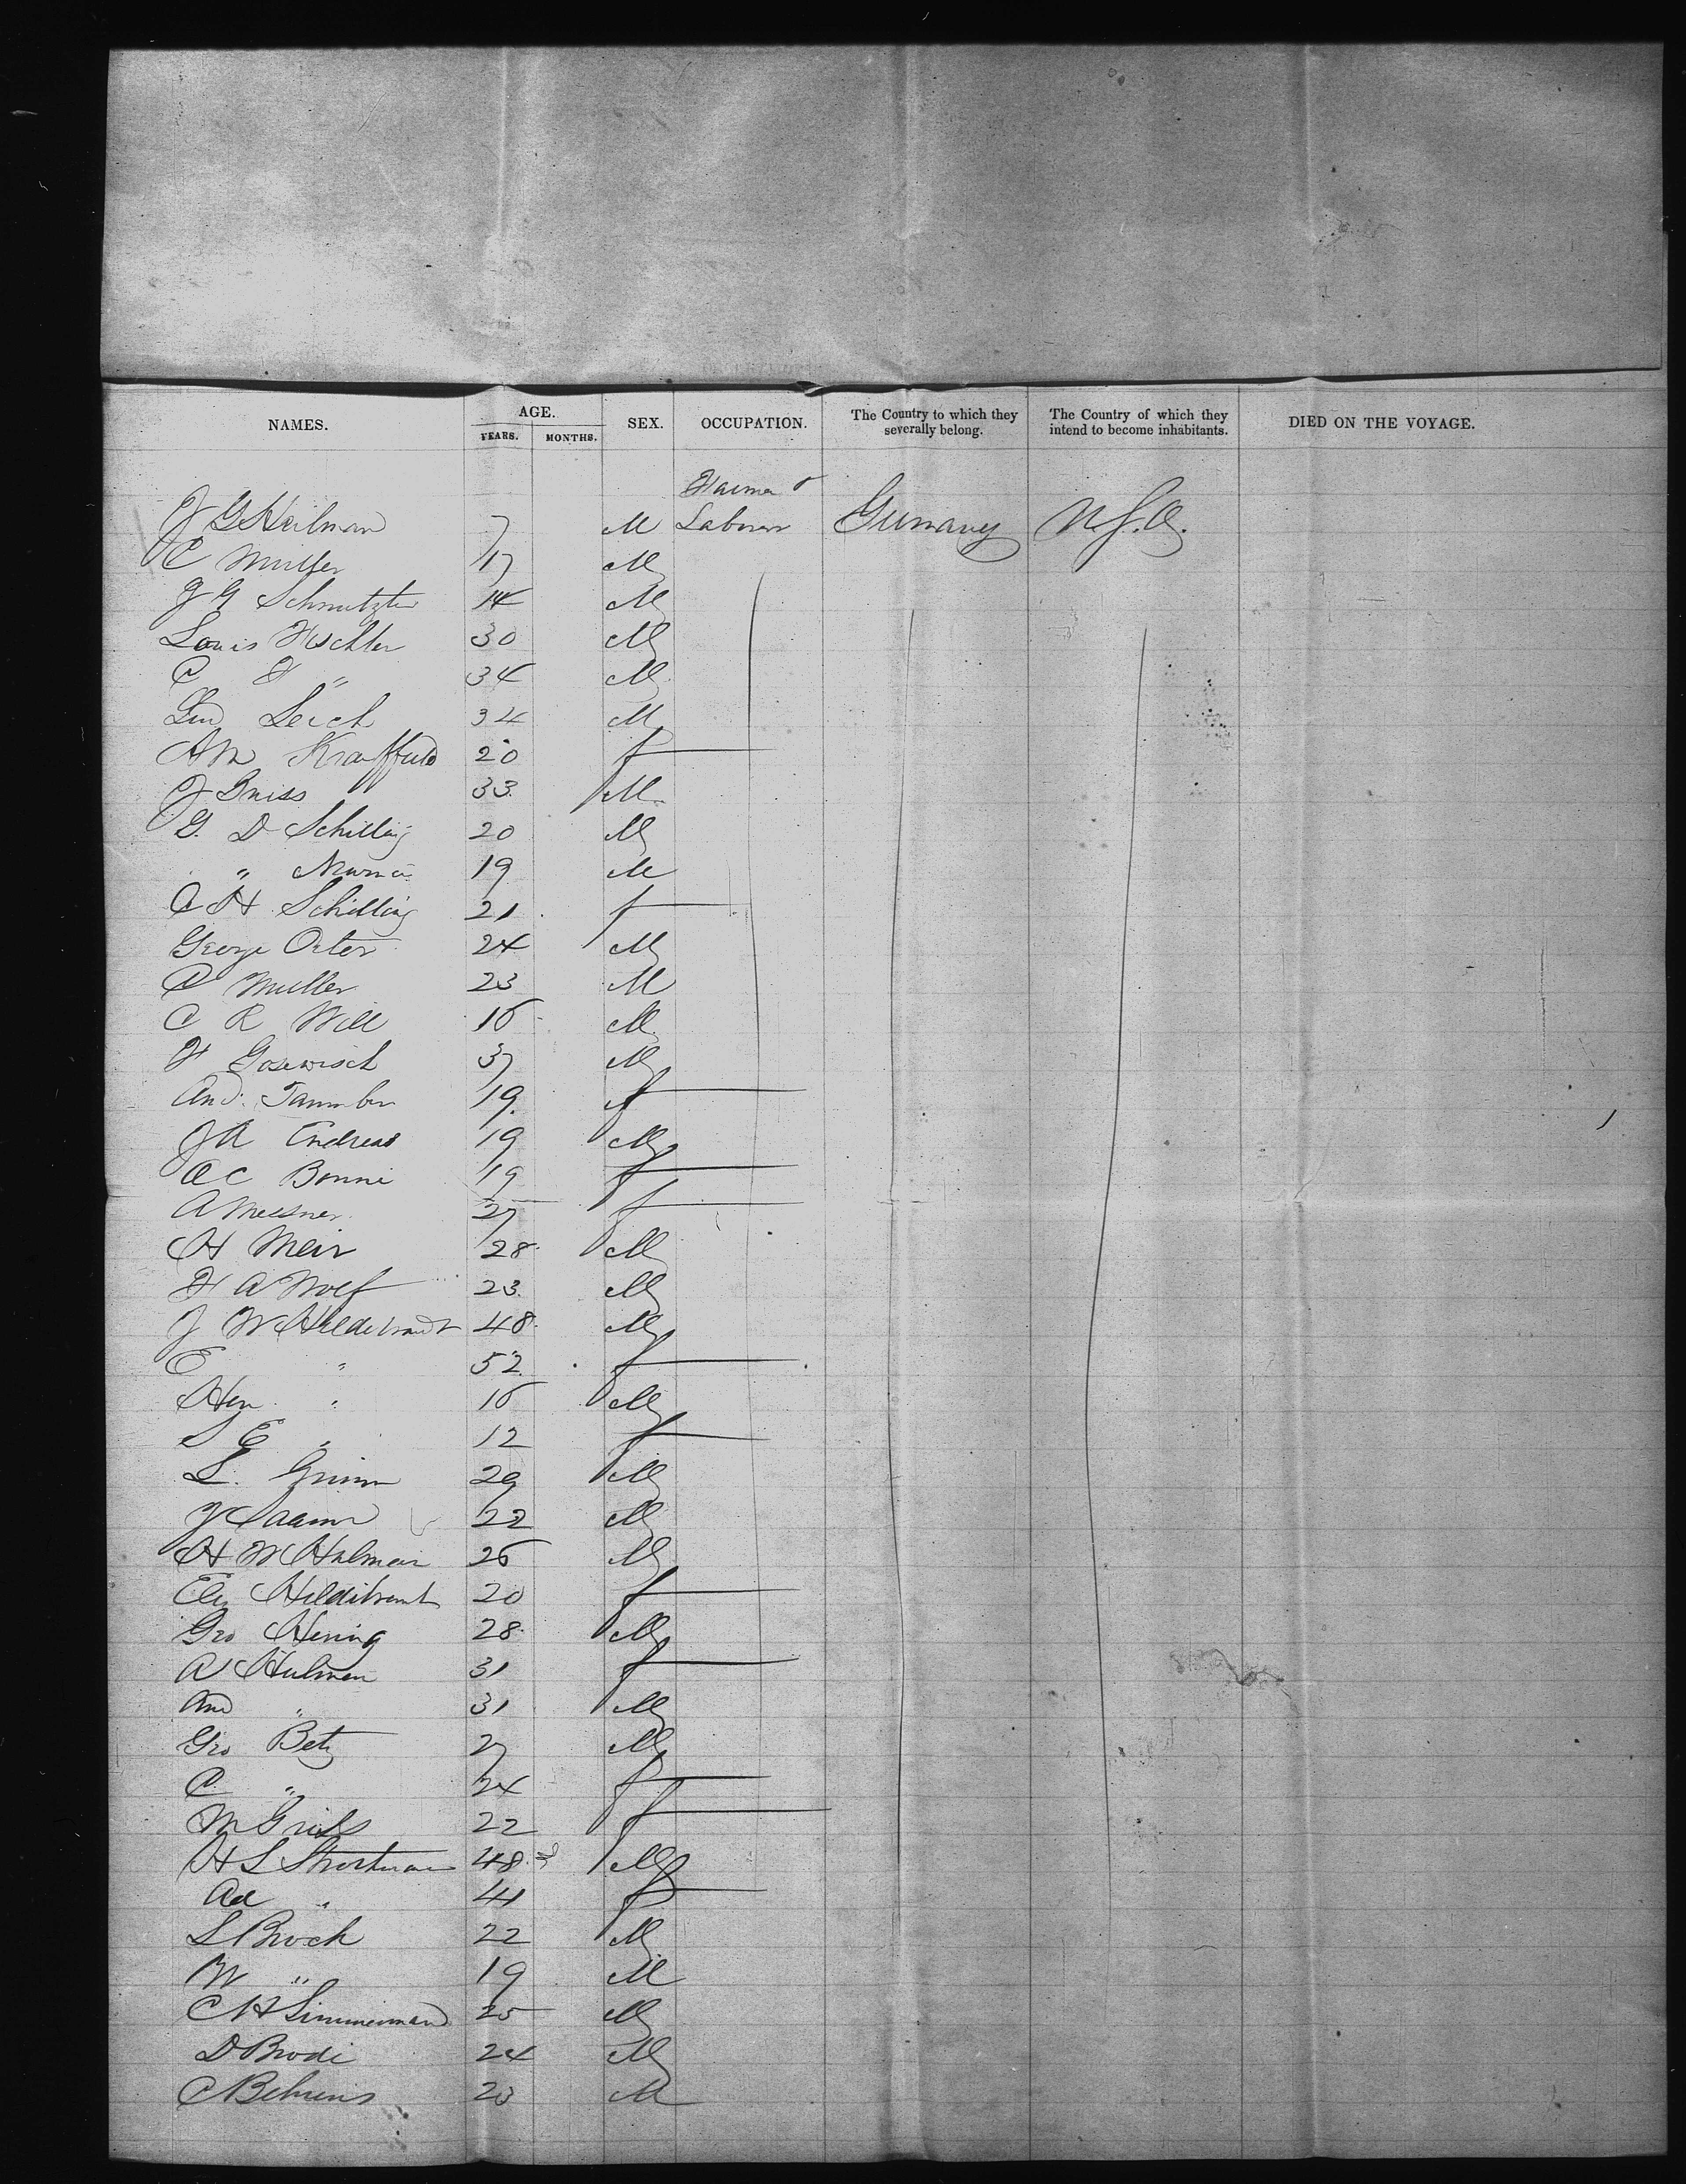 NAMES. AGE. YEARS. MONTHS. SEX. OCCUPATION. The Country to which they severally belong. The Country of which they intend to become inhabitants. DIED ON THE VOYAGE.
Farmer &
J G Heilman 7 M Laborer Germany U.S.A.
C Muller 17 M
J G Schmutzler 14 M
Louis Fischler 30 M
C F " 34 M
Leich 34 M
A M 20 f
J 33 M
G. D Schilling 20 M
" 19 M
C H Schilling 21 f
George Orter 24 M
C Muller 23 M
C R Will 16 M
F Gosewisch 37 M
And. 19 f
J A Endreas 19 M
A C Bonni 19 f
A Messner 27 f
H Meir 28 M
F A Wolf 23 M
J W Hildebrandt 48 M
E " 52 f
Hen " 16 M
S E " 12 f
L. Grimm 29 M
22 M
H W Halmeir 26 M
Eliz Hildibrant 20 f
Geo Hening 28 M
A Hulman 31 f
And " 31 M
Geo Betz 27 M
C " 24 f
M 22 f
H L 48 M
Ad " 41 f
L Broch 22 M
W " 19 M
C H Simmerman 25 M
D Brodi 24 M
C Behrens 23 M